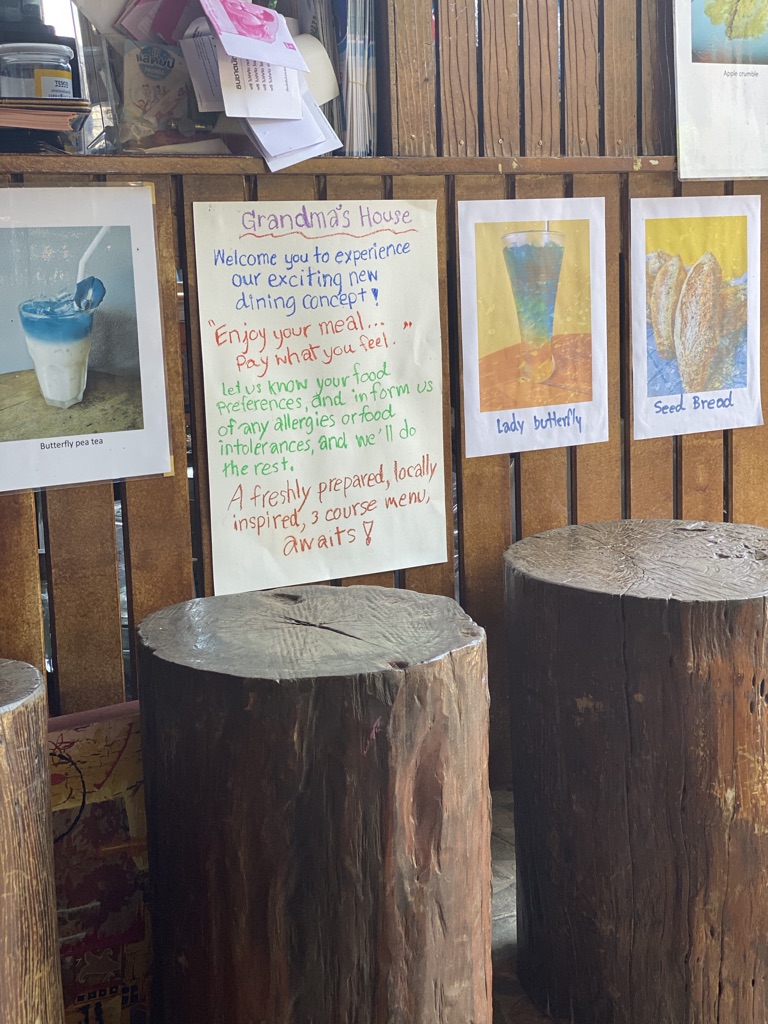 Apple crumble
Grandma's House
Welcome you to experience
our exciting new
dining concept!
"Enjoy your meal... "
Pay what you feel.
Let us know your food
preferences, and inform us
of any allergies or food
intolerances, and we'll do
the rest.
A freshly prepared, locally
inspired, 3 course menu,
awaits!
Butterfly pea tea
Lady butterfly
Seed Bread